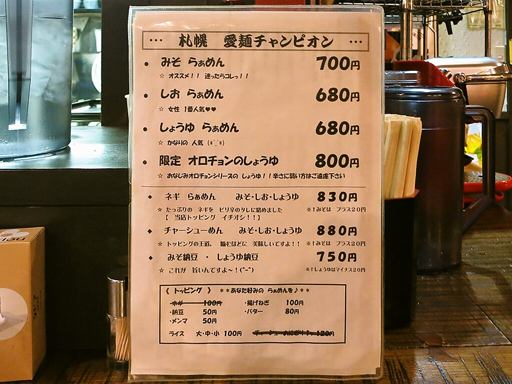 … 札幌 愛麺チャンピオン …
● みそ らぁめん 700円
☆ オススメ！！ 迷ったらコレっ！！
● しお らぁめん 680円
☆ 女性 1番人気♥♥
● しょうゆ らぁめん 680円
☆ かなりの 人気
● 限定 オロチョンのしょうゆ 800円
☆ おなじみオロチョンシリーズの しょうゆ！！辛さに弱い方はご遠慮下さい
◆ ネギ らぁめん みそ・しお・しょうゆ 830円
☆ たっぷりの ネギを ピリ辛のタレに絡めました ※みそは プラス20円
【 当店トッピング イチオシ！！】
◆ チャーシューめん みそ・しお・しょうゆ 880円
☆ トッピングの王道。 麺もほどに 美味しいですよ！！ ※みそは プラス20円
◆ みそ納豆 ・ しょうゆ納豆 750円
☆ これが 旨いんですよ～！(^-^) ※しょうゆはマイナス20円
《 トッピング 》 **あなた好みの らぁめんを♪**
・ネギ 100円 ・揚げねぎ 100円
・納豆 50円 ・バター 80円
・メンマ 50円
ライス 大・中・小 100円